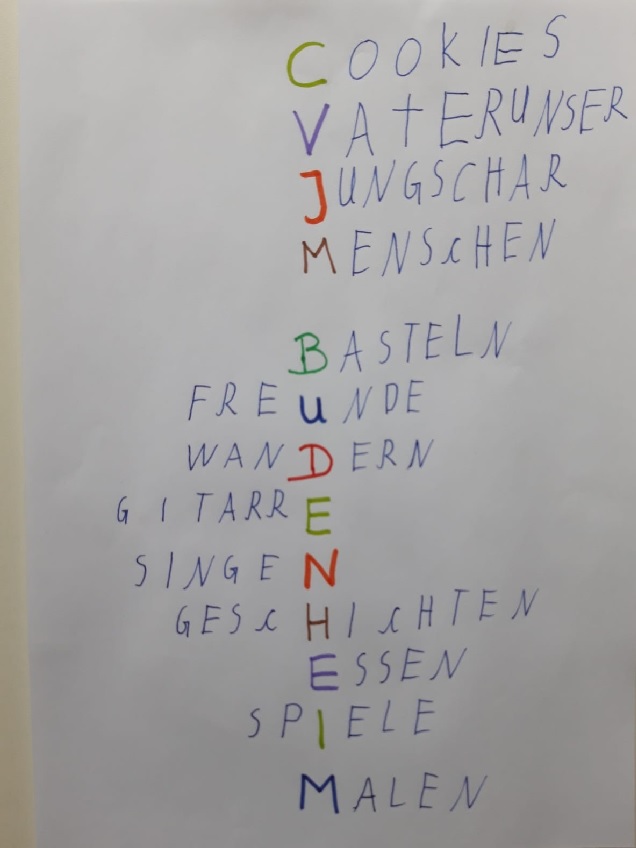 COOKIES
VATERUNSER
JUNGSCHAR
MENSCHEN
BASTELN
FREUNDE
WANDERN
GITARRE
SINGEN
GESCHICHTEN
ESSEN
SPIELE
MALEN